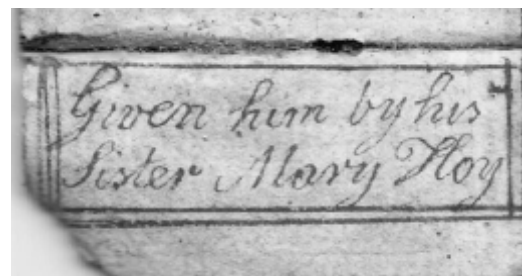 Given him by his
Sister Mary Hoy